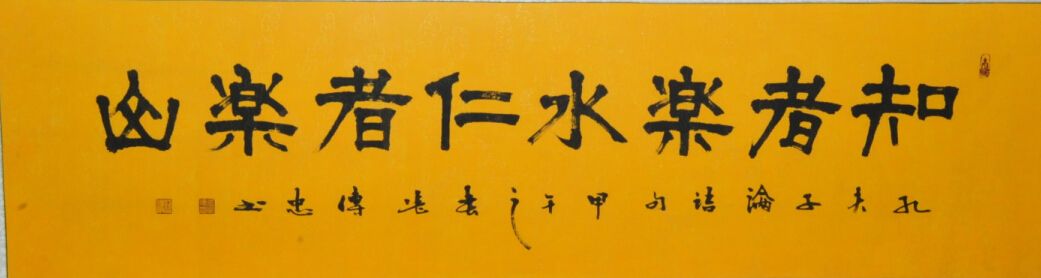 知者楽水仁者楽山
孔夫子論語句甲午之春張傳忠书